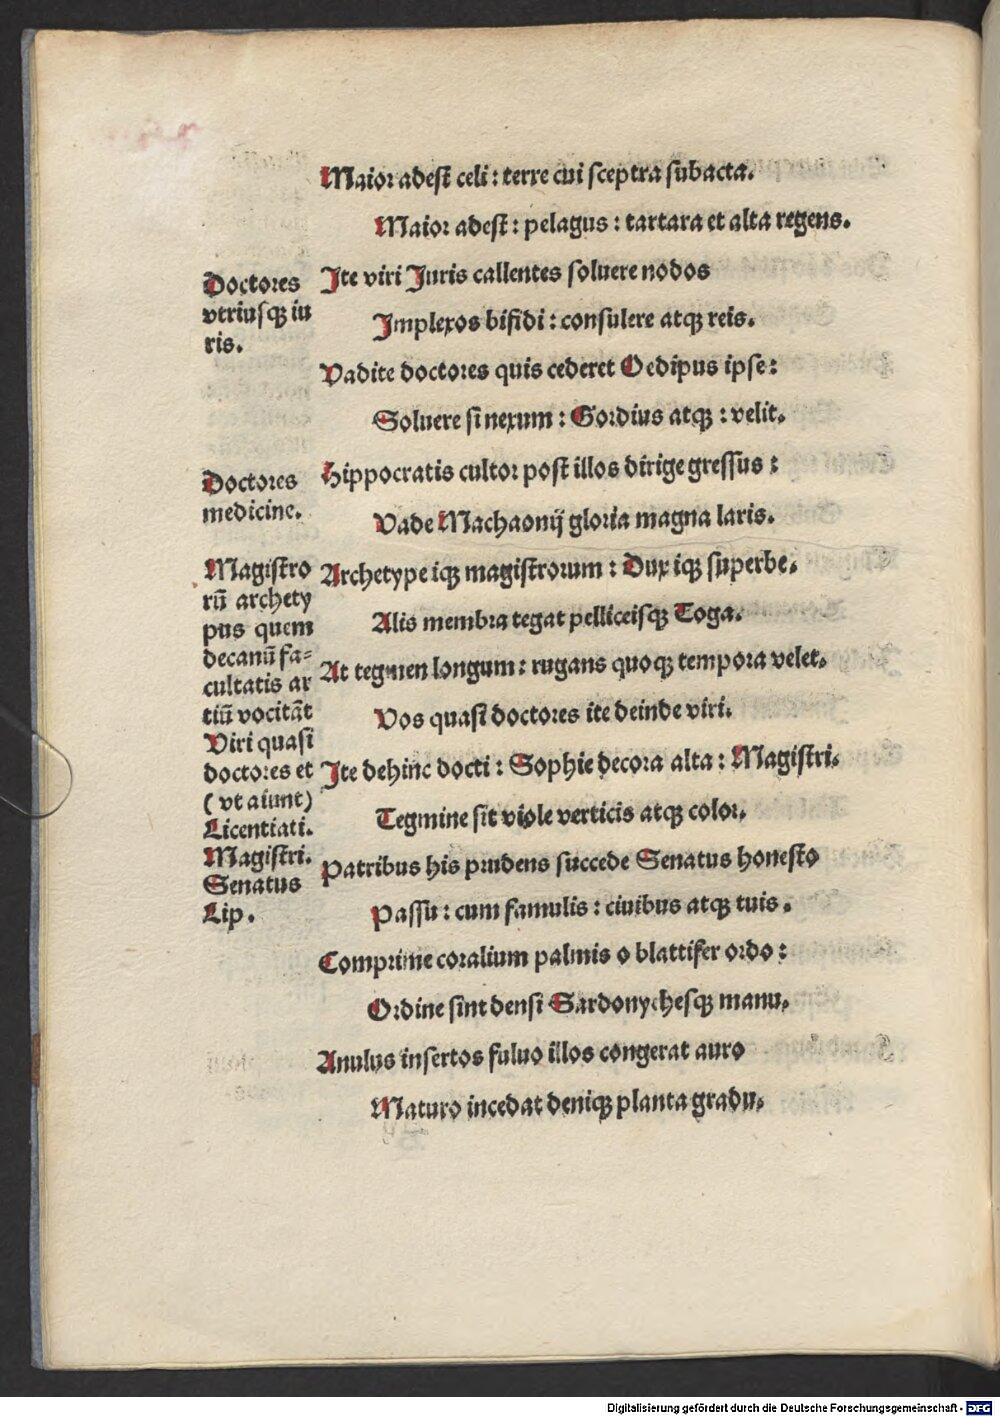 Maior adest celi : terre cui sceptra subacta.
Maior adest : pelagus : tartara et alta regens.
Doctores
vtriusqꝫ iu
ris.
Ite viri Iuris callentes soluere nodos
Implexos bifidi : consulere atqꝫ reis.
Vadite doctores quis cederet Oedipus ipse :
Soluere si nexum : Gordius atqꝫ : velit.
Doctores
medicine.
Hippocratis cultor post illos dirige gressus :
Vade Machaonij gloria magna laris.
Magistro
rū archety
pus quem
decanū fa=
cultatis ar
tiū vocitāt
Archetype iqꝫ magistrorum : Dux iqꝫ superbe.
Alis membra tegat pelliceisqꝫ Toga.
At tegmen longum : rugans quoqꝫ tempora velet.
Viri quasi
doctores et
(vt aiunt)
Licentiati.
Vos quasi doctores ite deinde viri.
Magistri.
Ite dehinc docti : Sophie decora alta : Magistri.
Tegmine sit viole verticis atqꝫ color.
Senatus
Lip.
Patribus his prudens succede Senatus honesto
Passu : cum famulis : ciuibus atqꝫ tuis.
Comprime coralium palmis o blattifer ordo :
Ordine sint densi Sardonychesqꝫ manu.
Anulus insertos fuluo illos congerat auro
Maturo incedat deniqꝫ planta gradu.
Digitalisierung gefördert durch die Deutsche Forschungsgemeinschaft - DFG